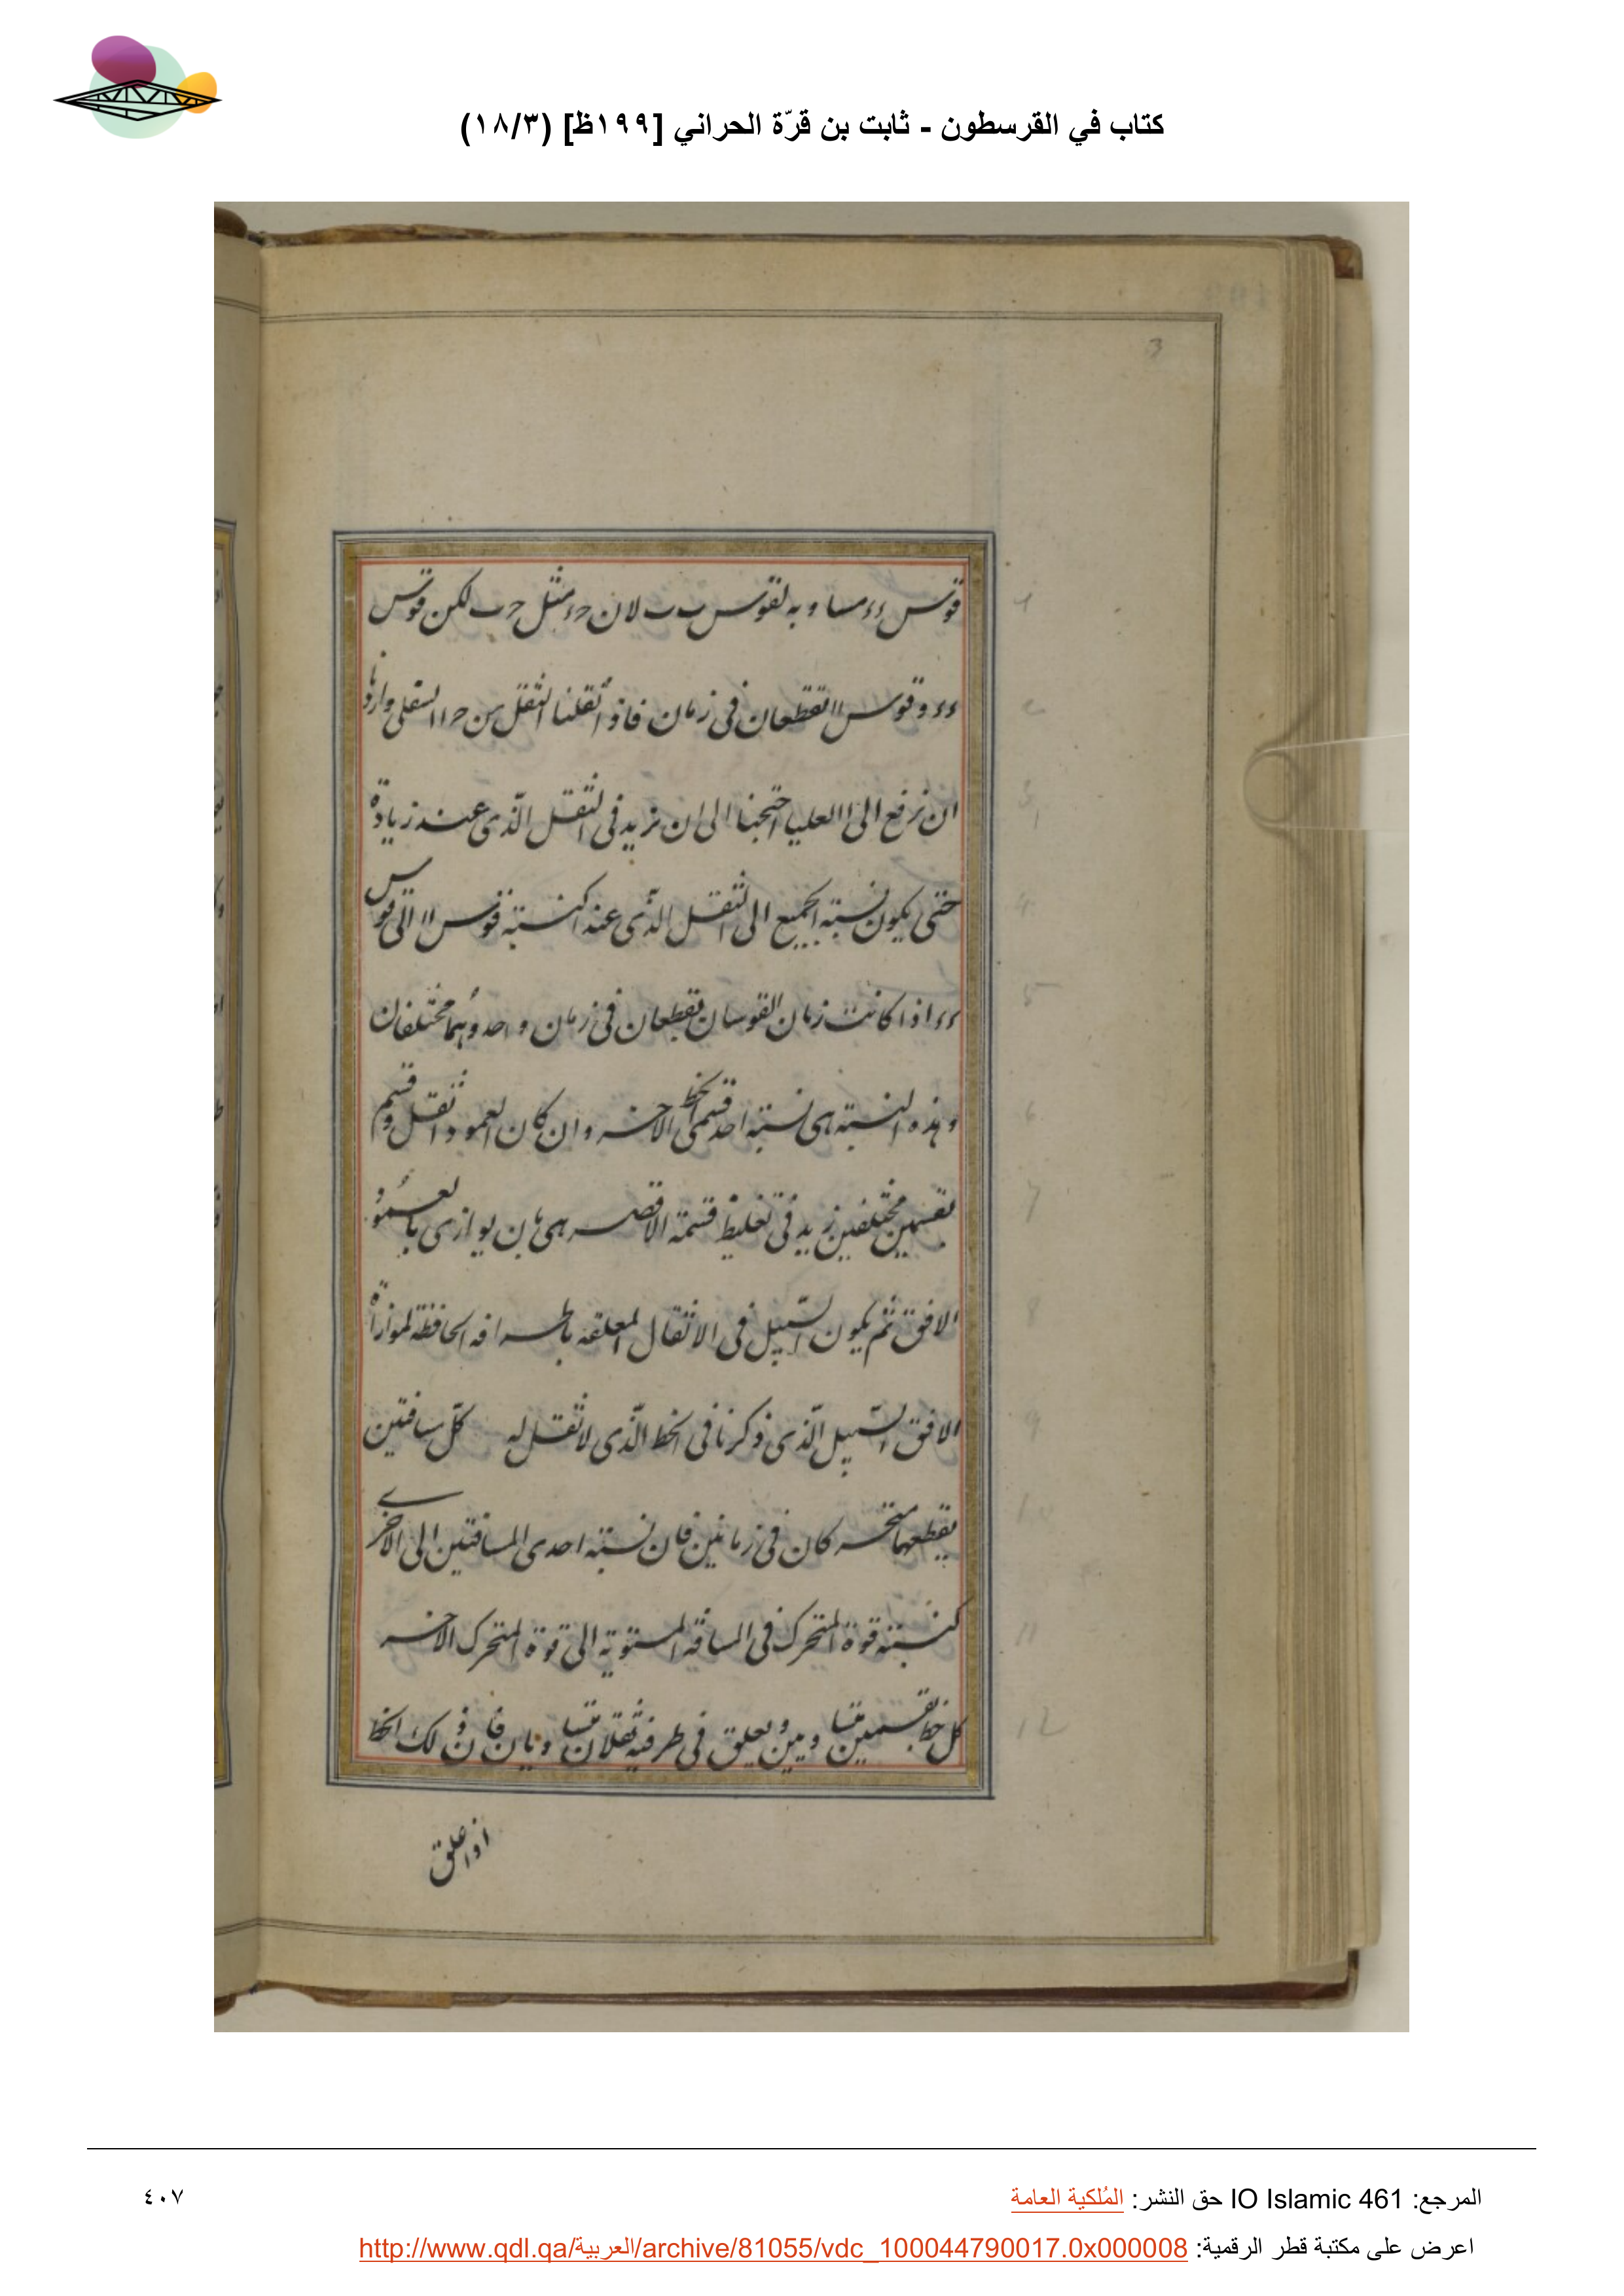 كتاب في القرسطون - ثابت بن قرّة الحراني [١٩٩ظ] (١٨/٣)
3
قوس ءء مساويه لقوس ب ب لان حء مثل حب لكن قوس
ءء وقوس اا تقطعان فى زمان فاذ اثقلنا الثقل من حاا السفلى وارونا
ان نرفع الى االعليا احتجنا الى ان نزيد فى الثقل الّذى عند زيادة
حتى يكون نسبته الجميع الى الثقل الّذى عند اكنسبته قوس اا الى قوس
ءء اذا كانت زمان القوسان تقطعان فى زمان واحد وهُما مختلفان
وهذه النسبته هى نسبته احد قسمى الخط الاخر وان كان العمود اثقل وقسم
بقسمين مختلفين زيد فى تغليظ قسمة الاقصر هى بان يوازى بالعمود
الافق ثم يكون السّبيل فى الاثقال المعلقه باطرافه الحافظة لموازاة
الافق السّبيل الّذى ذكرنا فى الخط الّذى لا ثقل له كلّ سافتين
يقطعها متحركان فى زمانين فان نسبته احدى المسافتين الى الاخرى
كنسبته قوة المتحرك فى المسافه المستوية الى قوة المتحرك الاخر
كل خط يقسم بقسمين متساويين ويعلق فى طرفيه ثقلان متساويان فان ذلك الخط
اذا علق
1
2
3
4
5
6
7
8
9
10
11
12
المرجع: IO Islamic 461 حق النشر: المُلكية العامة
٤٠٧
اعرض على مكتبة قطر الرقمية: http://www.qdl.qa/العربية/archive/81055/vdc_100044790017.0x000008